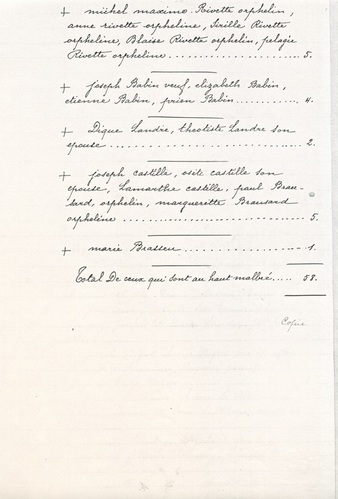 + michel maxime Rivette orphelin,
anne rivette orpheline, Sirille Rivette
orpheline, Blaise Rivette orphelin, pelagie
Rivette orpheline .................... 5.
+ joseph Babin veuf, elizabeth Babin,
etienne Babin, prien Babin ............ 4.
+ Digue Landre, theotiste Landre son
epouse .................... 2.
+ joseph castille, osite castille son
epouse, Lamarthe castille, paul Brau-
sard, orphelin, margueritte Brausard
orpheline .................... 5.
+ marie Brasseu .................... 1.
Total De ceux qui sont au haut mallué..... 58.
Copie